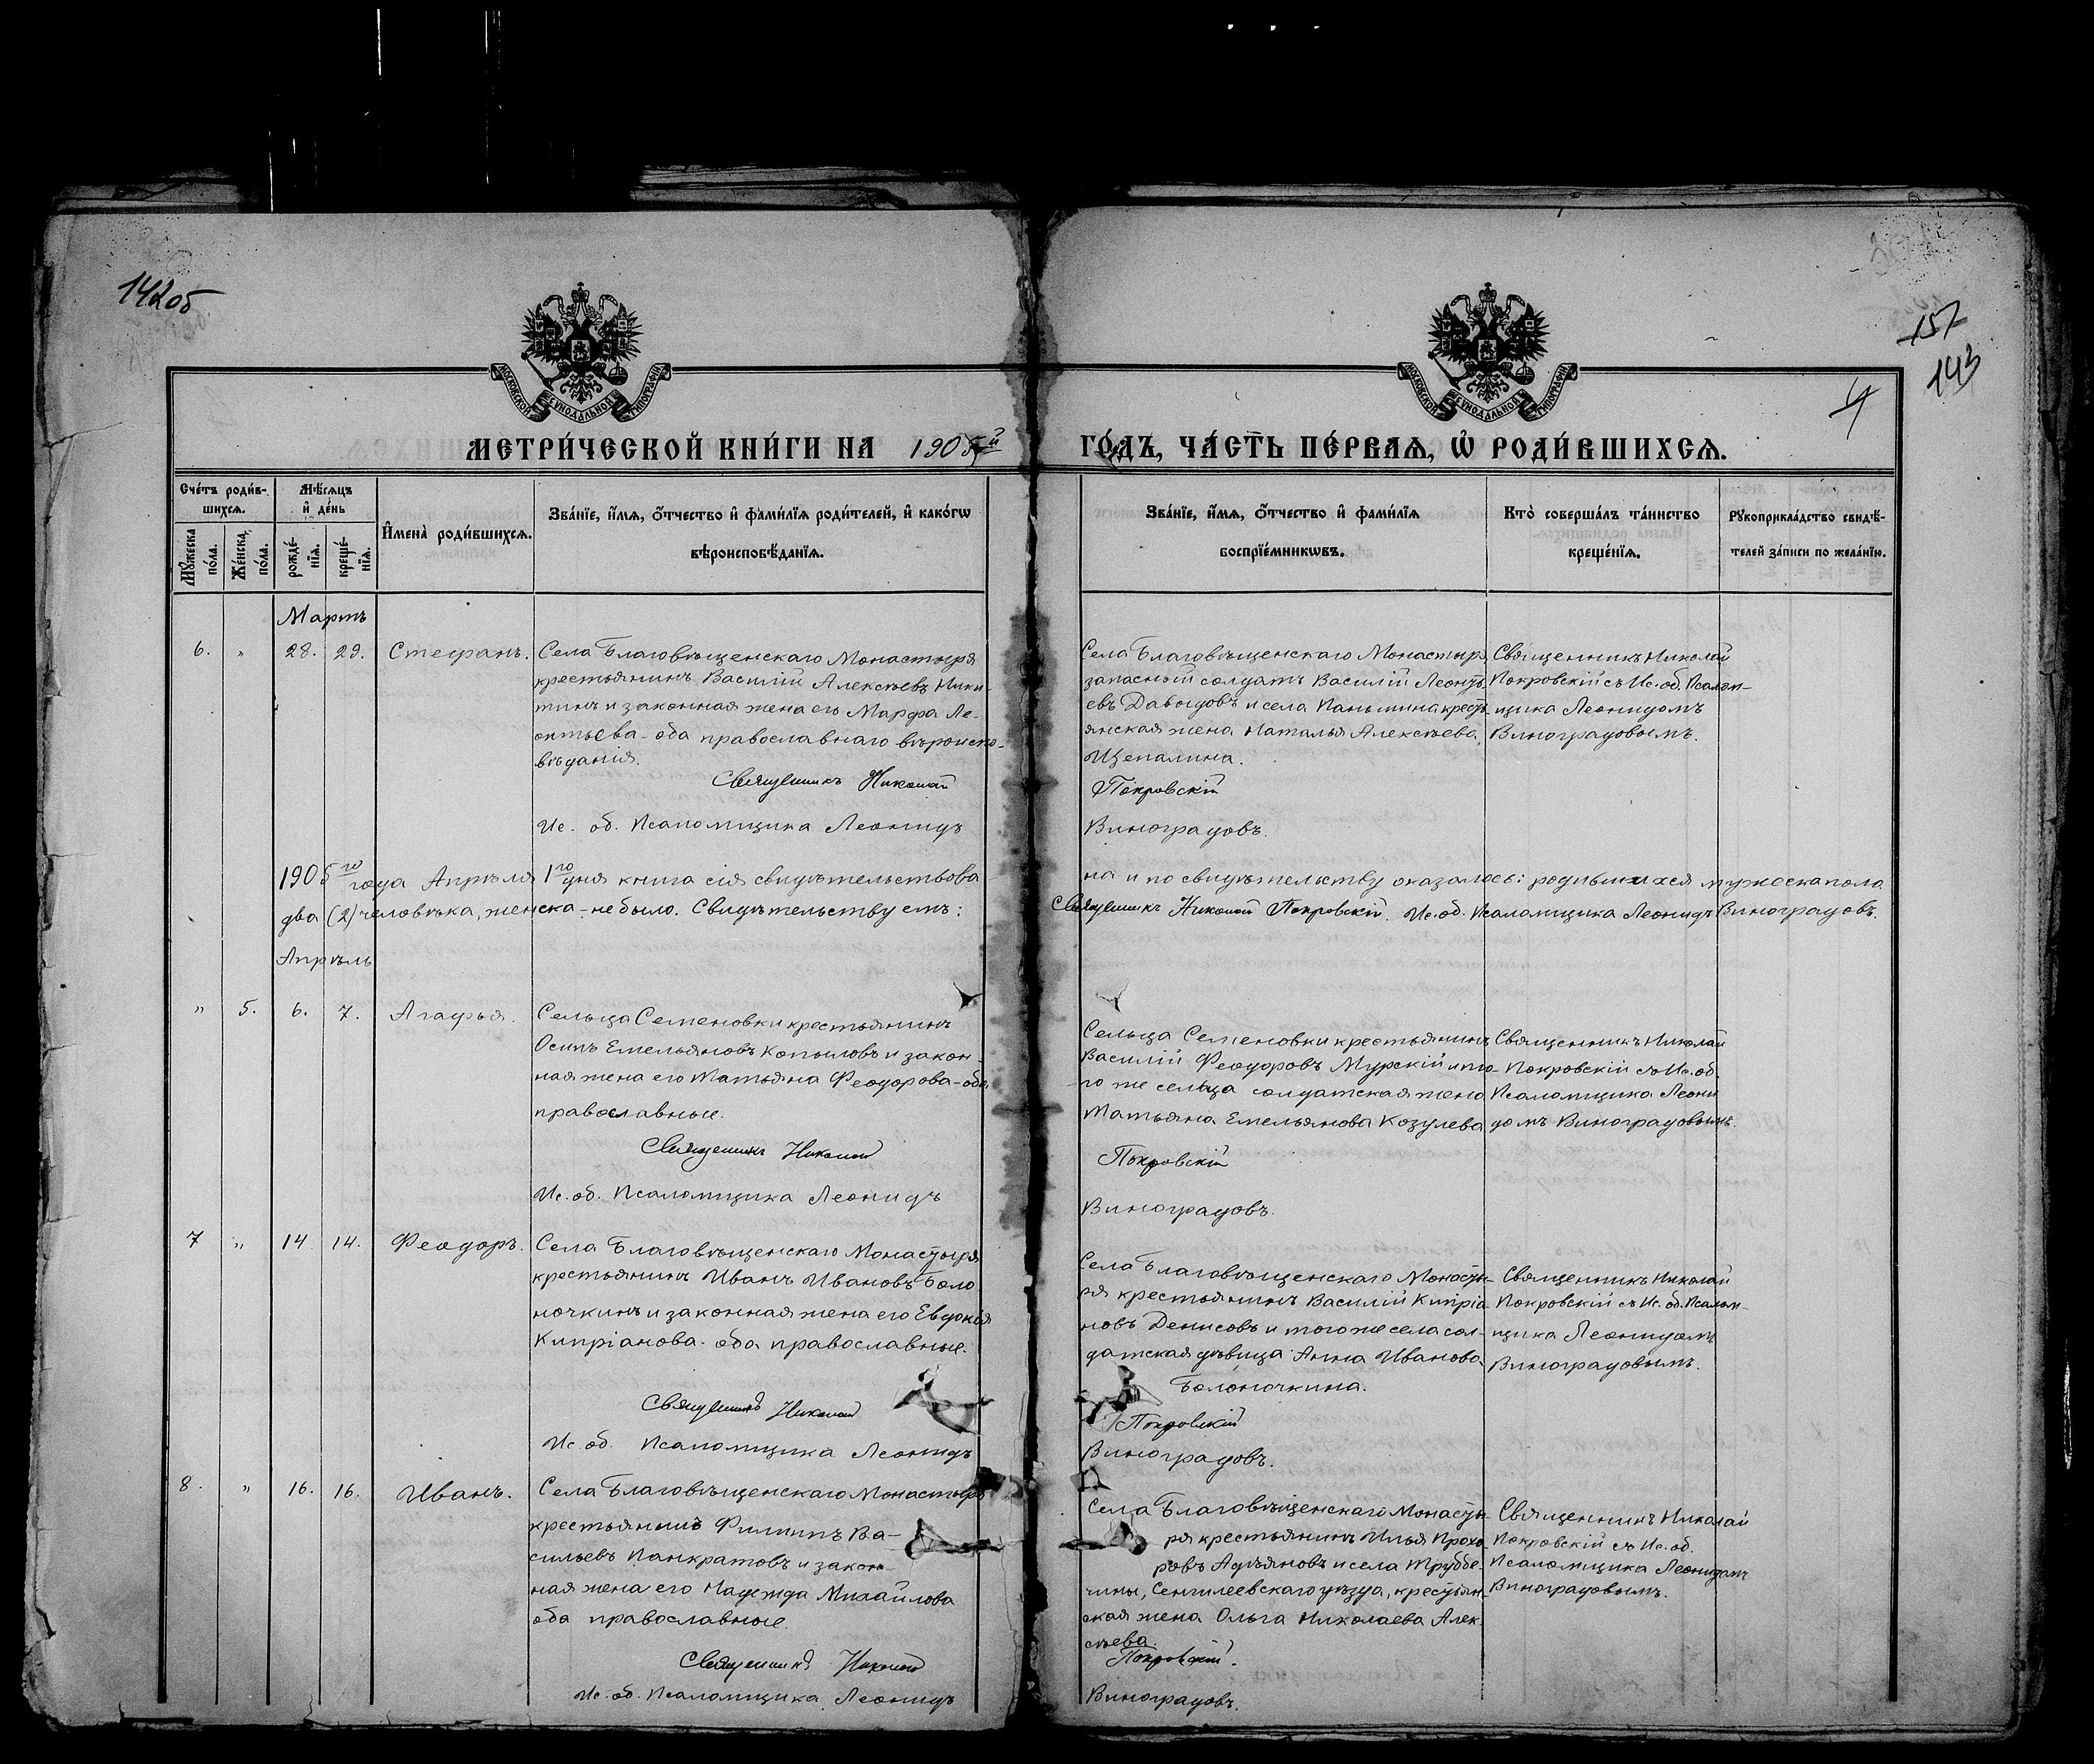 142об
157
143
4
МОСКОВСКОЙ СѴНОДАЛЬНОЙ ТИПОГРАФІИ
МОСКОВСКОЙ СѴНОДАЛЬНОЙ ТИПОГРАФІИ
МЕТРИ́ЧЕСКОЙ КНИ́ГИ НА 1905й ГО́ДЪ, ЧА́СТЬ ПЕ́РВАѦ, Ѡ҆ РОДИ́ВШИХСѦ.
Сче́тъ роди́в-
шихсѧ.
Мѣ́сѧцъ
и҆ де́нь
Мꙋ́жеска по́ла.
Же́нска по́ла.
рожде́нїѧ.
креще́нїѧ.
И҆мена̀ роди́вшихсѧ.
Зва́нїе, и҆́мѧ, ѻ҆́тчество и҆ фами́лїѧ роди́телей, и҆ како́гѡ
вѣроисповѣ́данїѧ.
Зва́нїе, и҆́мѧ, ѻ҆́тчество и҆ фами́лїѧ
воспрїе́мникѡвъ.
Кто̀ соверша́лъ та́инство
креще́нїѧ.
Рꙋкоприкла́дство свидѣ́-
телей за́писи по жела́нїю.
Мартъ
6. " 28. 29. Стефанъ.
Села Благовѣщенскаго Монастыря
крестьянинъ Василій Алексѣевъ Ники-
тинъ и законная жена его Марфа Ле-
онтьева - оба православнаго вѣроиспо-
вѣданія.
Священникъ Николай
Ис. об. Псаломщика Леонидъ
Села Благовѣщенскаго Монастыря
запасной солдатъ Василій Леонть-
евъ Давыдовъ и села Паньшина кресть-
янская жена Наталья Алексѣева
Щепалина.
Покровскій
Виноградовъ.
Священникъ Николай
Покровскій съ Ис. об. Псалом-
щика Леонидомъ
Виноградовымъ.
1905го года Апрѣля 1го дня книга сія свидѣтельствова на и по свидѣтельству оказалось: родившихся мужеска пола
два (2) человѣка, женска - не было. Свидѣтельствуемъ: Священникъ Николай Покровскій. Ис. об. Псаломщика Леонидъ Виноградовъ.
Апрѣль
" 5. 6. 7. Агафья.
Сельца Семеновки крестьянинъ
Осипъ Емельяновъ Копыловъ и закон-
ная жена его Татьяна Феодорова - оба
православные.
Священникъ Николай
Ис. об. Псаломщика Леонидъ
Сельца Семеновки крестьянинъ
Василій Феодоровъ Мурскій и то-
го же сельца солдатская жена
Татьяна Емельянова Козулева
Покровскій
Виноградовъ.
Священникъ Николай
Покровскій съ Ис. об.
Псаломщика Леони
домъ Виноградовымъ.
7 " 14 14. Феодоръ.
Села Благовѣщенскаго Монастыря
крестьянинъ Иванъ Ивановъ Боло
ночкинъ и законная жена его Евдокія
Кипріанова - оба православные.
Священникъ Николай
Ис. об. Псаломщика Леонидъ
Села Благовѣщенскаго Монасты-
ря крестьянинъ Василій Кипріа-
новъ Денисовъ и того же села сол-
датская дѣвица Анна Иванова
Болоночкина.
Покровскій
Виноградовъ.
Священникъ Николай
Покровскій съ Ис. об. Псалом-
щика Леонидомъ
Виноградовымъ.
8. " 16. 16. Иванъ.
Села Благовѣщенскаго Монастыря
крестьянинъ Филиппъ Ва-
сильевъ Панкратовъ и закон-
ная жена его Надежда Михайлова
оба православные.
Священникъ Николай
Ис. об. Псаломщика Леонидъ
Села Благовѣщенскаго Монасты-
ря крестьянинъ Илья Прохо
ровъ Адъяновъ и села Труббе-
чины, Сенгилеевскаго уѣзда, крестьян-
ская жена Ольга Николаева Алек-
сѣева.
Покровскій.
Виноградовъ.
Священникъ Николай
Покровскій съ Ис. об.
Псаломщика Леонидомъ
Виноградовымъ.